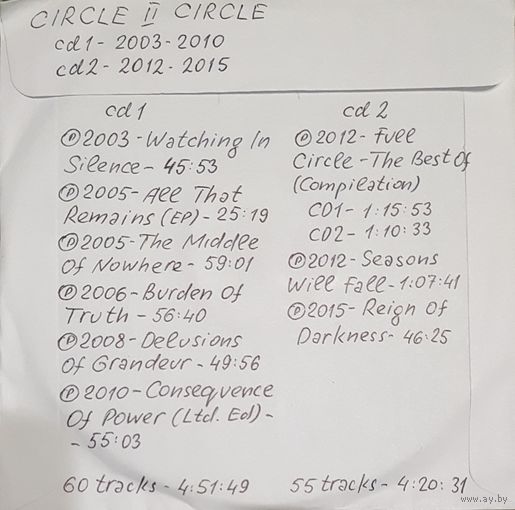 CIRCLE II CIRCLE
cd1 - 2003-2010
cd2 - 2012-2015
cd1
Ⓟ2003-Watching In
Silence - 45:53
Ⓟ2005-All That
Remains (EP) - 25:19
Ⓟ2005-The Middle
Of Nowhere - 59:01
Ⓟ2006-Burden Of
Truth - 56:40
Ⓟ2008-Delusions
Of Grandeur - 49:56
Ⓟ2010-Consequence
Of Power (Ltd. Ed) -
- 55:03
60 tracks - 4:51:49
cd2
Ⓟ2012-Full
Circle-The Best Of
(Compilation)
CD1 - 1:15:53
CD2 - 1:10:33
Ⓟ2012-Seasons
Will Fall-1:07:41
Ⓟ2015-Reign Of
Darkness - 46:25
55 tracks - 4:20:31
www.ay.by